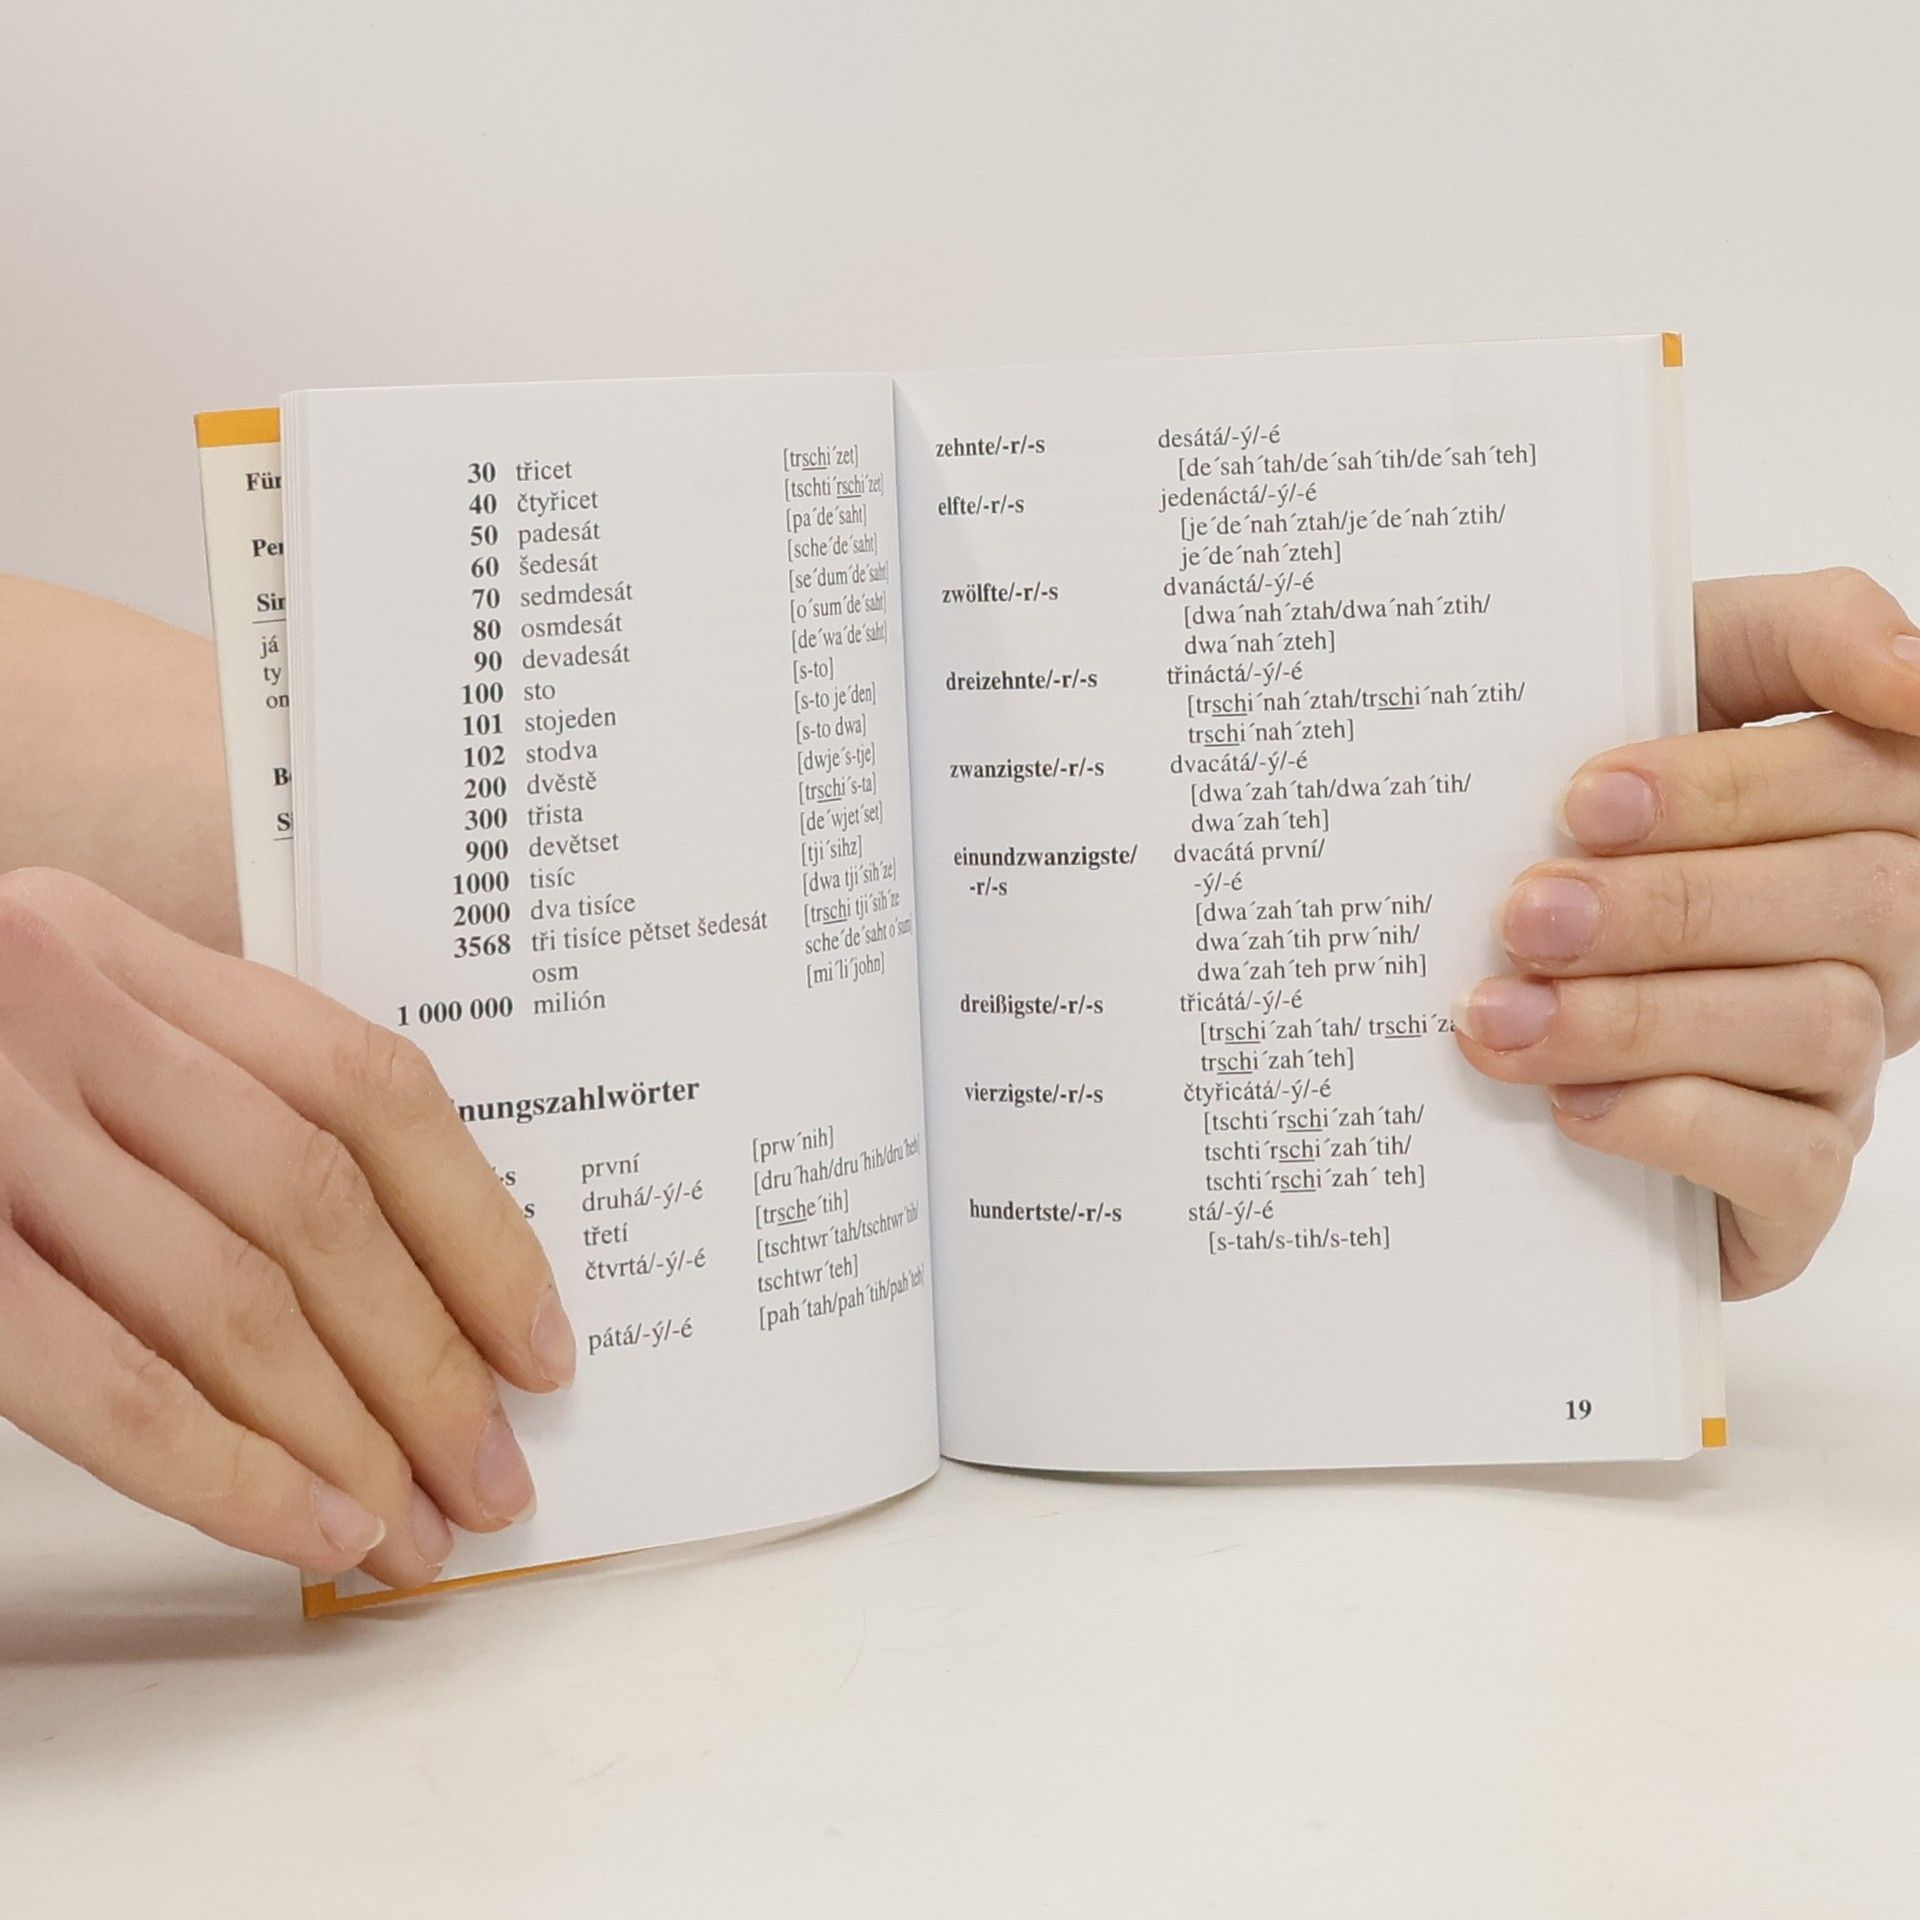 30 třicet [trschi´zet]
40 čtyřicet [tschti´rschi´zet]
50 padesát [pa´de´saht]
60 šedesát [sche´de´saht]
70 sedmdesát [se´dum´de´saht]
80 osmdesát [o´sum´de´saht]
90 devadesát [de´wa´de´saht]
100 sto [s-to]
101 stojeden [s-to je´den]
102 stodva [s-to dwa]
200 dvěstě [dwje´s-tje]
300 třista [trschi´s-ta]
900 devětset [de´wjet´set]
1000 tisíc [tji´sihz]
2000 dva tisíce [dwa tji´sih´ze]
3568 tři tisíce pětset šedesát [trschi tji´sih´ze
osm sche´de´saht o´sum]
1 000 000 milión [mi´li´john]
nungszahlwörter
-s první [prw´nih]
s druhá/-ý/-é [dru´hah/dru´hih/dru´heh]
třetí [trsche´tih]
čtvrtá/-ý/-é [tschtwr´tah/tschtwr´tih/
tschtwr´teh]
pátá/-ý/-é [pah´tah/pah´tih/pah´teh]
já
ty
zehnte/-r/-s desátá/-ý/-é
[de´sah´tah/de´sah´tih/de´sah´teh]
elfte/-r/-s jedenáctá/-ý/-é
[je´de´nah´ztah/je´de´nah´ztih/
je´de´nah´zteh]
zwölfte/-r/-s dvanáctá/-ý/-é
[dwa´nah´ztah/dwa´nah´ztih/
dwa´nah´zteh]
dreizehnte/-r/-s třináctá/-ý/-é
[trschi´nah´ztah/trschi´nah´ztih/
trschi´nah´zteh]
zwanzigste/-r/-s dvacátá/-ý/-é
[dwa´zah´tah/dwa´zah´tih/
dwa´zah´teh]
einundzwanzigste/ dvacátá první/
-r/-s -ý/-é
[dwa´zah´tah prw´nih/
dwa´zah´tih prw´nih/
dwa´zah´teh prw´nih]
dreißigste/-r/-s třicátá/-ý/-é
[trschi´zah´tah/ trschi´za
trschi´zah´teh]
vierzigste/-r/-s čtyřicátá/-ý/-é
[tschti´rschi´zah´tah/
tschti´rschi´zah´tih/
tschti´rschi´zah´ teh]
hundertste/-r/-s stá/-ý/-é
[s-tah/s-tih/s-teh]
19